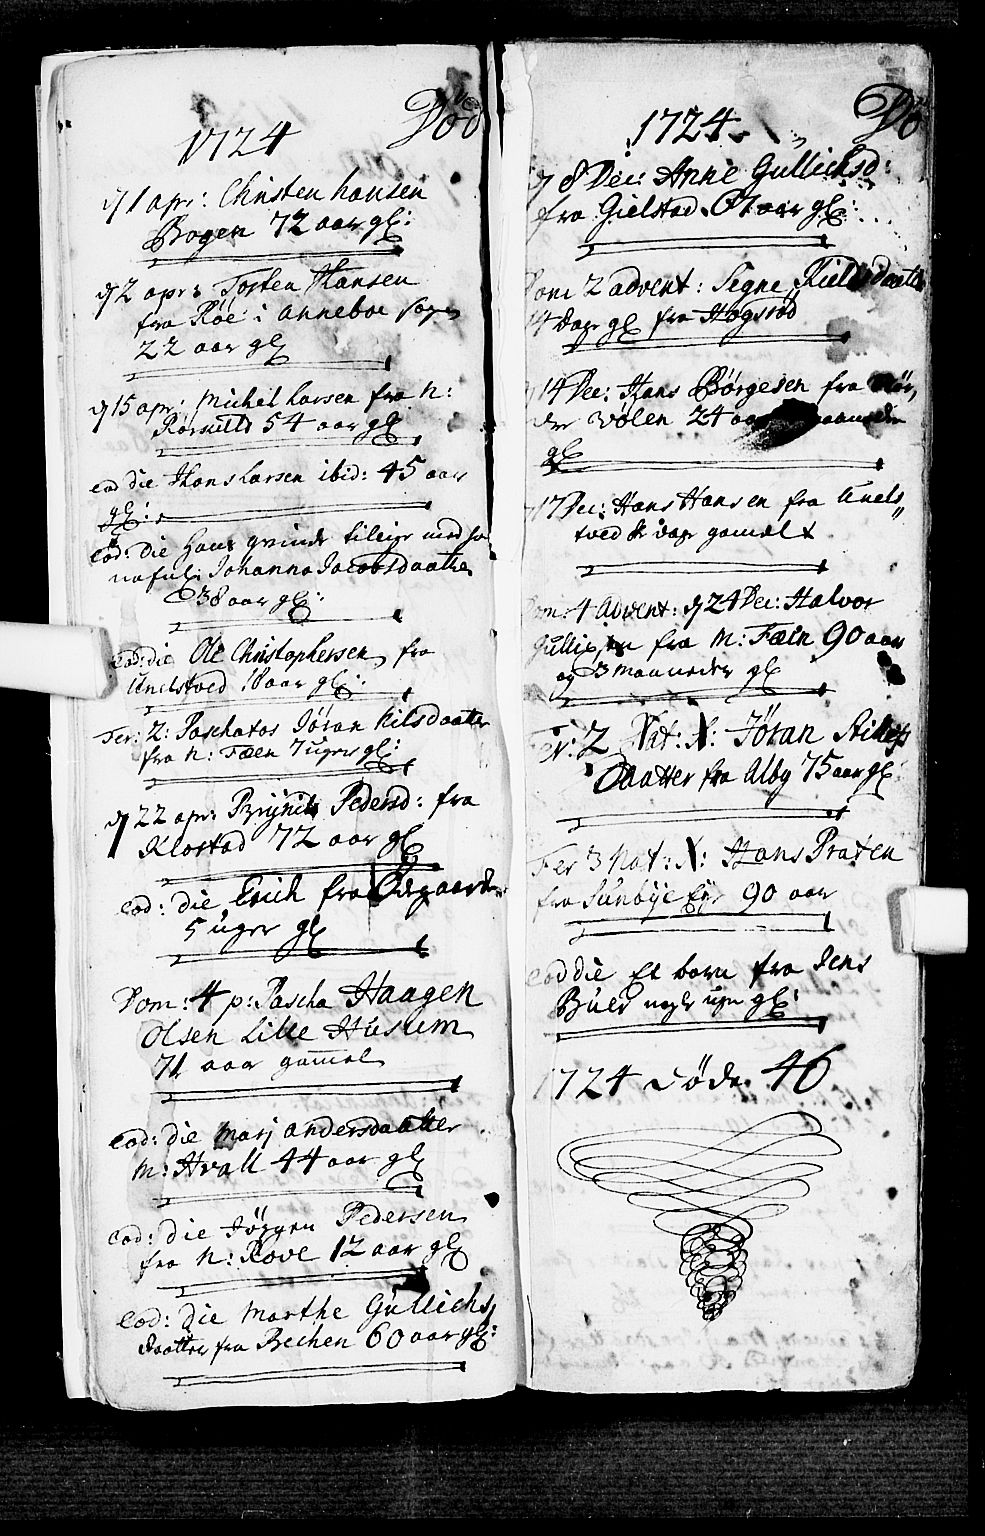 1724 Död
d 1 apr: Christen hansen
Bogen 72 aar gl:
d 2 apr: Torsten Hansen
fra Röe i anneboe sogn
22 aar gl
d 15 apr: Michel Larsen fra N:
54 aar gl
eod die Hans Larsen ibid: 45 aar
gl:
Eod: die Hans qvinde tillige med
Johanna Jacobsdaatter
38 aar gl:
Eod: die Ole Christophersen fra
Unelstved 18 aar gl:
Fer: 2: Paschatos Jöran Nilsdaatter
fra N: Fæen 7 uger gl:
d 22 apr: Brynild Pedersd: fra
Klostad 72 aar gl
Eod: die Erich fra Ödegaarden
5 uger gl
Dom: 4 p: Pascha Haagen
Olsen Lille Huslem
71 aar gammel
Eod: die Marj andersdaatter
M: Hvall 44 aar gl
Eod: die Jörgen Pedersen
fra N: Rove 12 aar gl
Eod: die Marthe Gullichs
daatter fra Bechen 60 aar gl:
1724. Dö
d 8 Dec: Anne Gullichsd:
fra Gielstad. 67 aar gl:
Dom 2 advent: Segne Kieldsdaatter
14 Dage gl fra Hogsröd
14 Dec: Hans Börgesen fra
der Volen 24 aar maaneder
gl
17 Dec: Hans Hansen fra Unels
tved 8 dage gamel
Dom: 4 Advent: d 24 Dec: Halvor
Gullichsen fra M: Fæen 90 aar
og 3 maaneder gl
Fer: 2 Nat: X: Jöran
Daatter fra Alby 75 aar gl:
Fer 3 Nat: X: Hans Praxen
fra Sunbye Eje 90 aar
eod die Et barn fra Jens
Buer nogle uger gl:
1724 döde 46